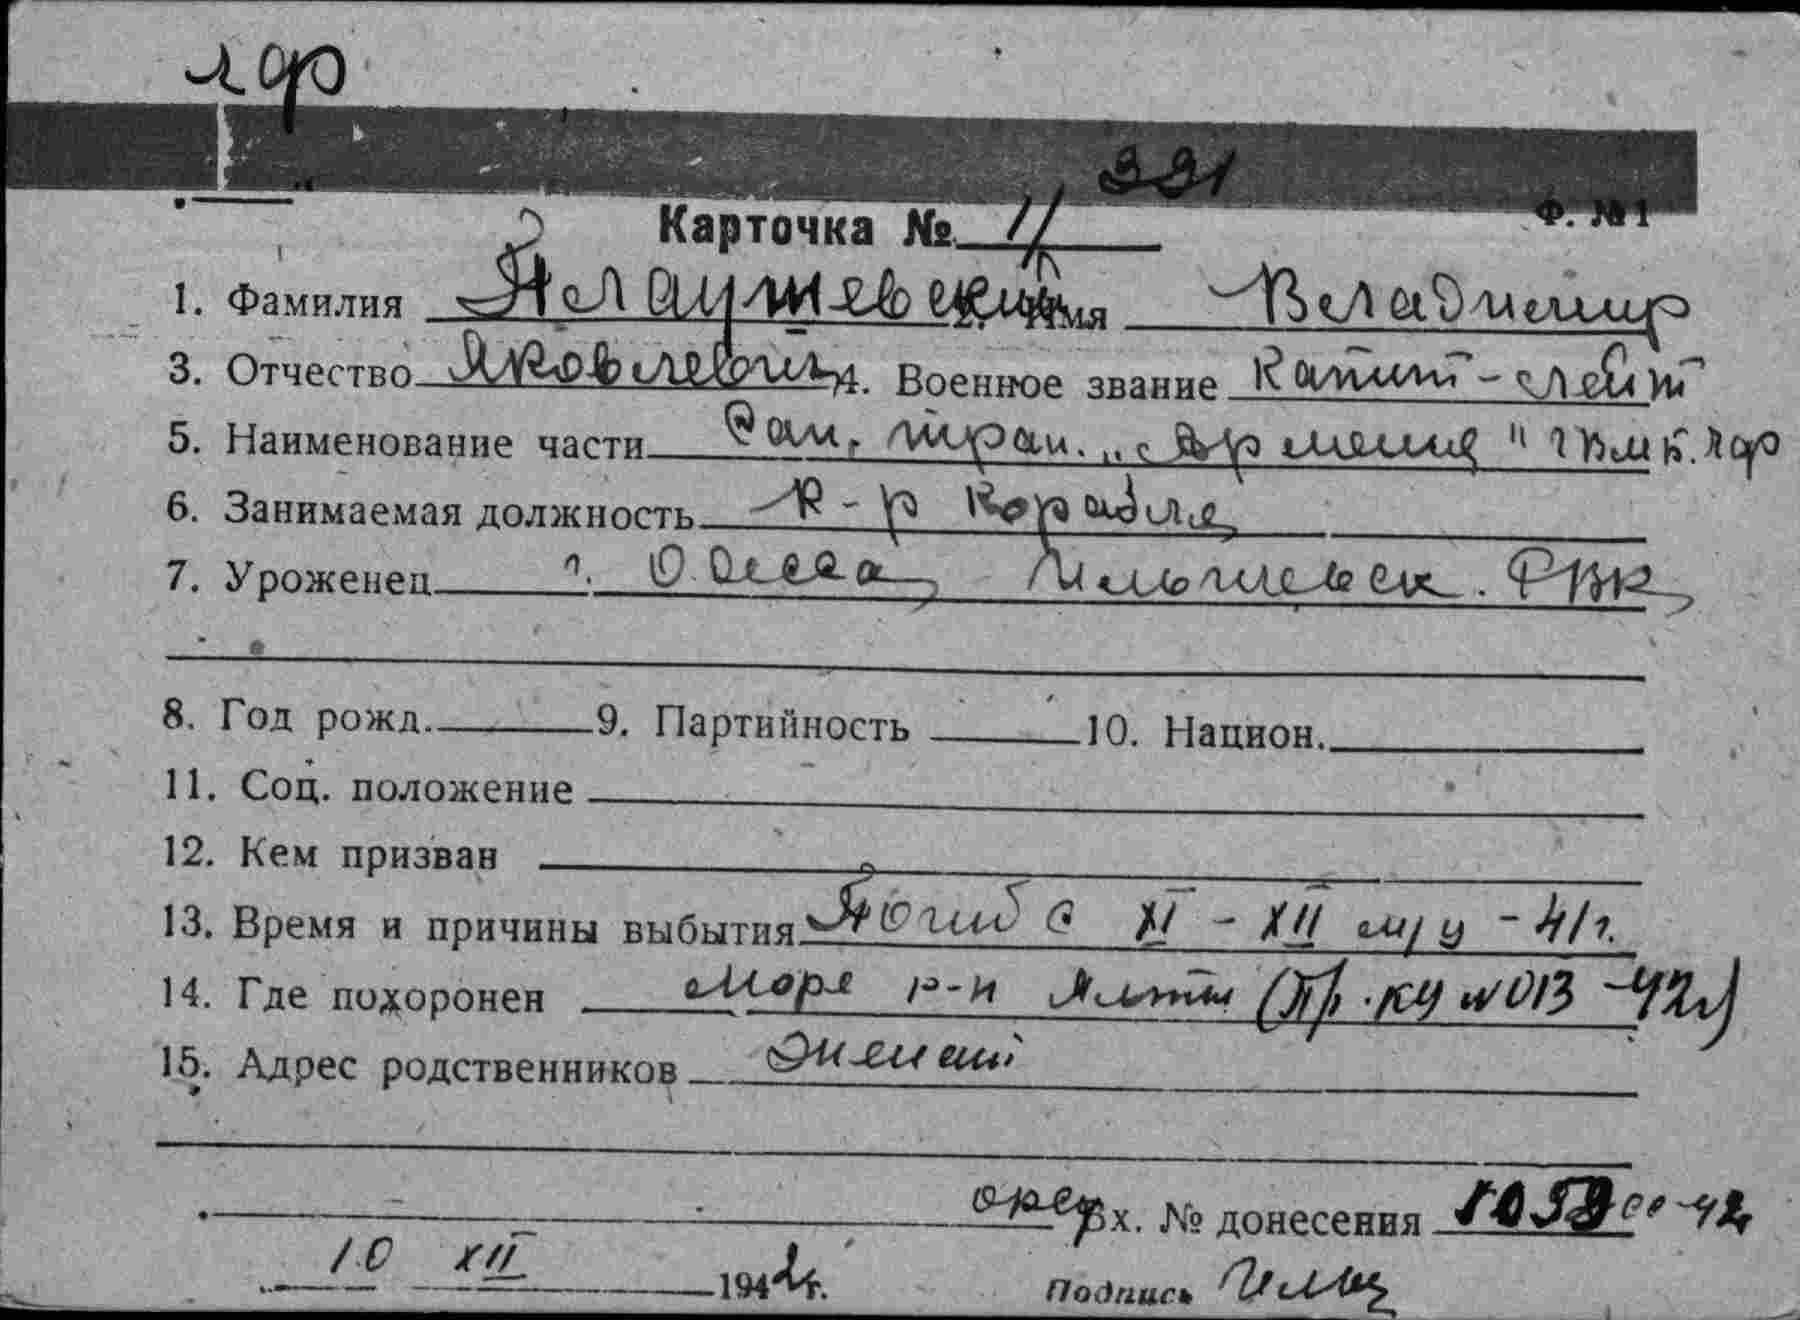 чф
331
Ф. №1
Карточка № 11
1. Фамилия Плаушевский 2. Имя Владимир
3. Отчество Яковлевич 4. Военное звание Капит-лейт
5. Наименование части Сан. тран. „Армения" ЧФ
6. Занимаемая должность К-р корабля
7. Уроженец г. Одесса, Ильичевск. РВК,
8. Год рожд. 9. Партийность 10. Национ.
11. Соц. положение
12. Кем призван
13. Время и причины выбытия Погиб в XI - XII м/ц - 41г.
14. Где похоронен море р-н Ялты (Пр. КУ №013 -42г)
15. Адрес родственников
Вх. № донесения 1059 сс 42
10 XII 1942г. Подпись